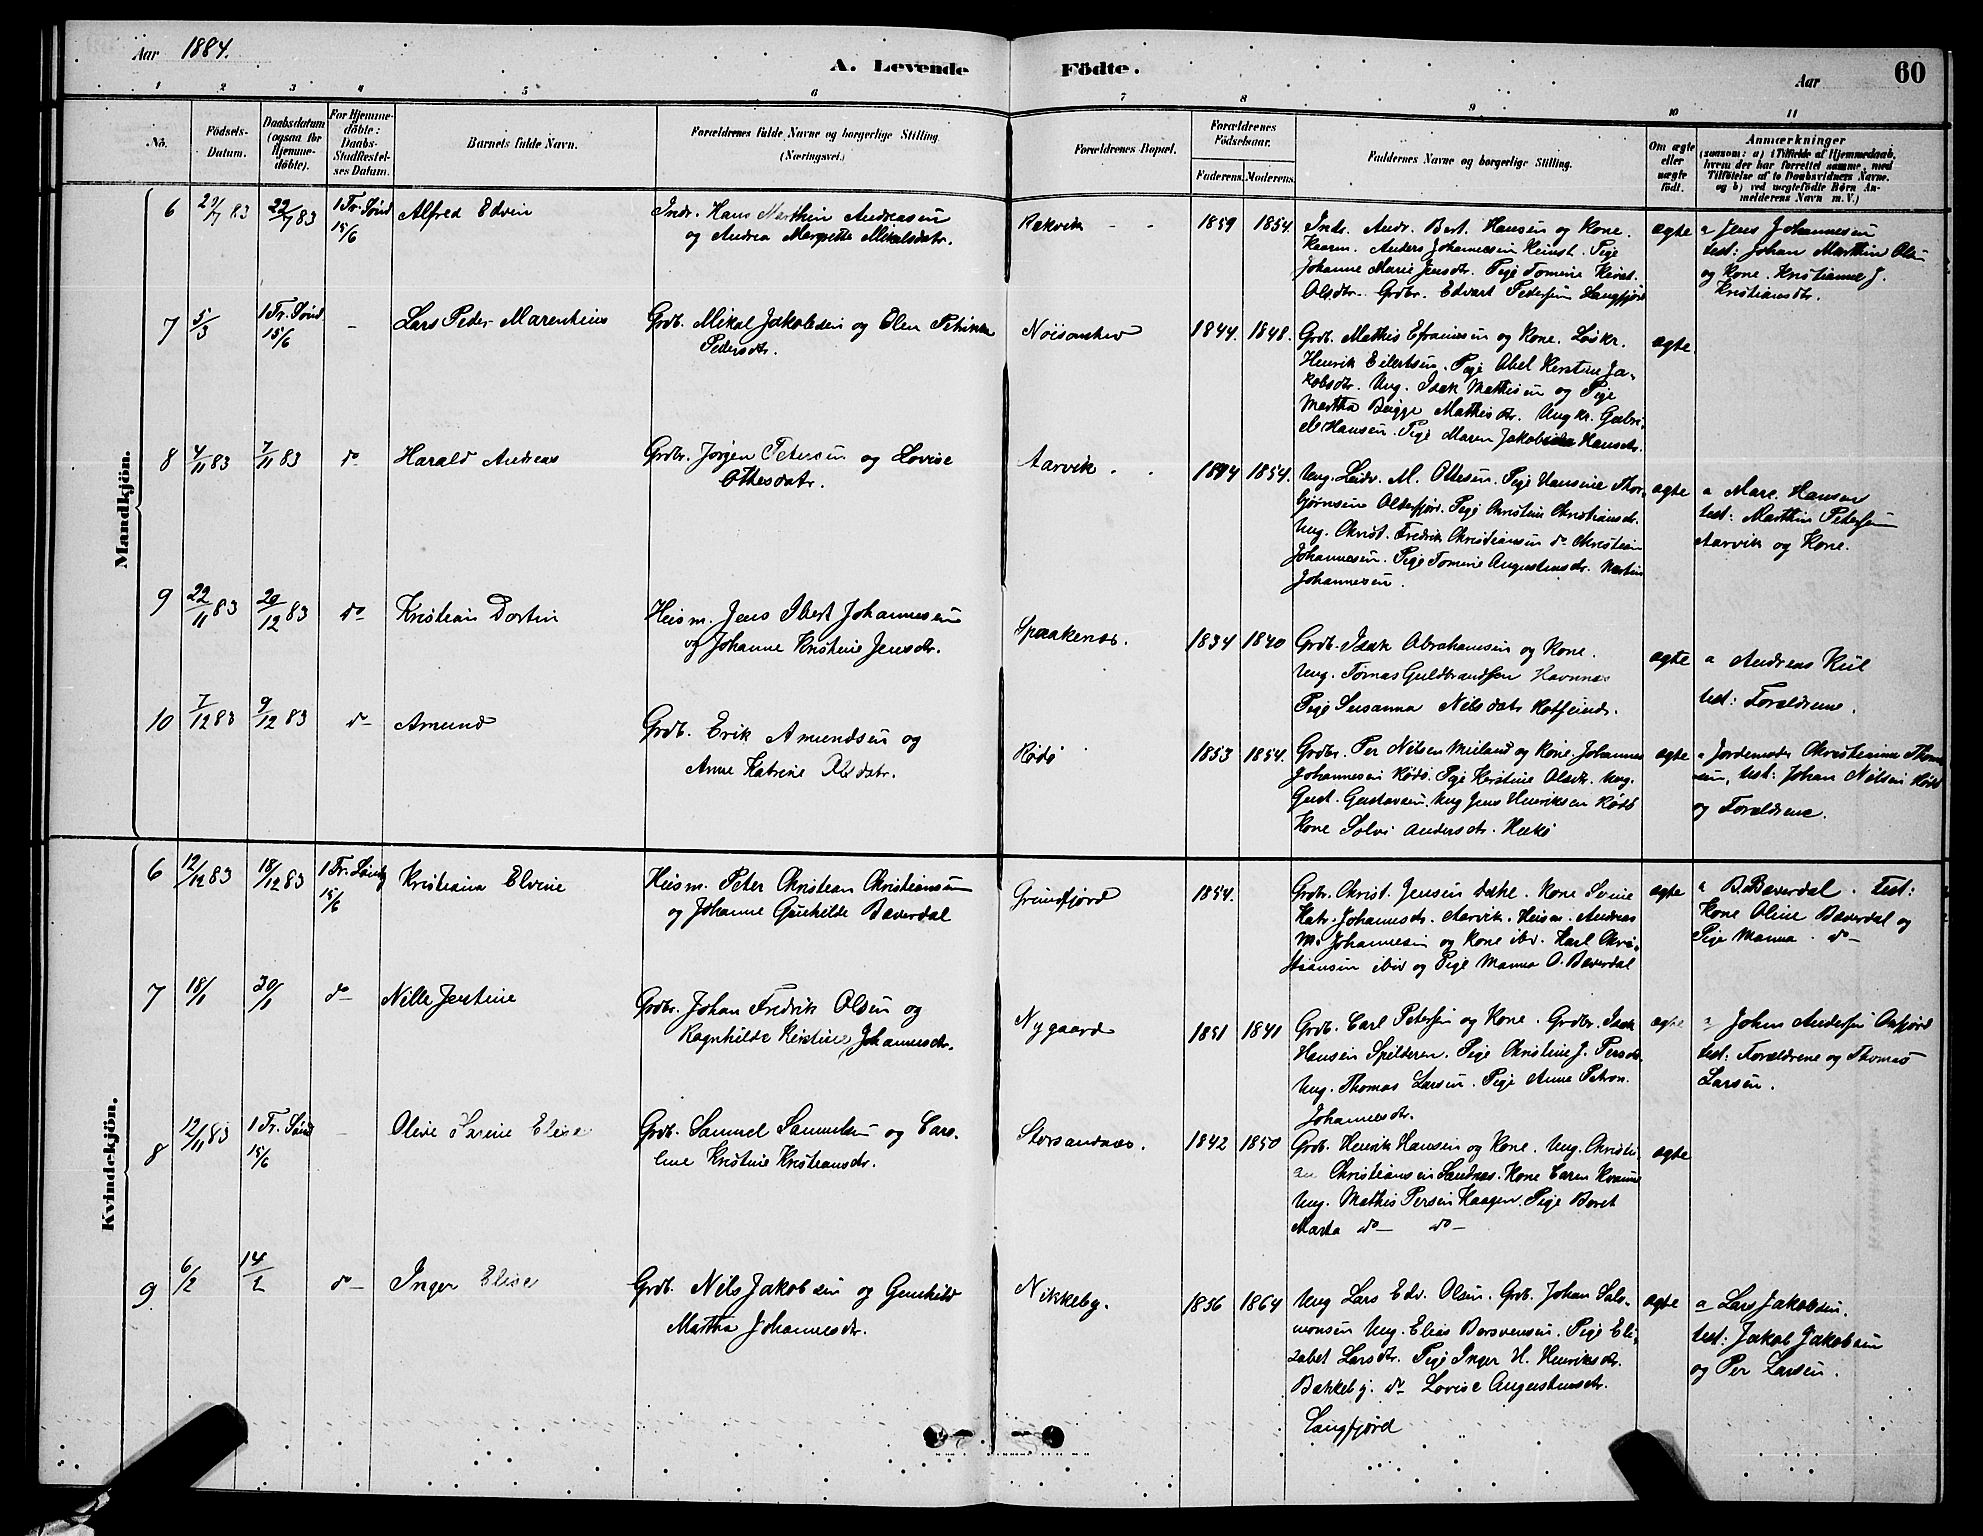 Aar 1884.
A. Levende Födte.
Aar
60
1 2 3 4 5 6 7 8 9 10 11
No.
Födsels-Datum.
Daabsdatum (ogsaa for Hjemmedöbte).
For Hjemmedöbte: Daabs-Stadfæstelses Datum.
Barnets fulde Navn.
Forældrenes fulde Navne og borgerlige Stilling. (Næringsvei.)
Forældrenes Bopæl.
Forældrenes Födselsaar.
Faderens. Moderens.
Faddernes Navne og borgerlige Stilling.
Om ægte eller uægte födt.
Anmærkninger
(saasom: a) i Tilfælde af Hjemmedaab, hvem der har forrettet samme, med Tilföielse af to Daabsvidners Navne, og b) ved uægtefödte Börn Anmelderens Navn m. V.)
Mandkjön.
6 /7 83 22/7 83 1 Tr. Sønd 15/6
Alfred Edvin
Indr. Hans Marthin Andreasen
og Andrea Margrette Mikalsdatr.
Rakvik - -
1859 1854.
Inds. Andr. Bert. Hansen og Kone.
Karen. Anders Johannesen Keinst. Pige
Johanne Marie Jensdtr. Pige Tomine
Olsdtr. Grdbr. Edvart Pedersen Langfjord
ægte
a Jens Johannesen
test: Johan Marthin Olsen
og Kone. Kristianne J.
Kristiansdtr.
7 5/3 1 Tr. Sønd 15/6 -
Lars Peder Marenthius
Grdb. Mikal Jakobsen og Elen Petrikka
Pedersdtr.
1844. 1848.
Grdb. Mathis Efraimsen og Kone. Løskr.
Henrik Eilertsen. Pige Abel Kerstine Ja-
kobsdtr. Ung. Isak Mathisen og Pige
Martha Bugge Mathisdtr. Ungkr. Gabri-
el Hansen. Pige Maren Jakobine Hansdtr.
ægte.
8 4/11 83 7/11 83 do
Harald Andreas
Grdbr. Jørgen Petersen og Lovise
Ottesdatr.
Aarvik - -
1844 1854.
Ung. Leidr. M. Ottesen. Pige Hansine Thor-
bjørnsine Olderfjord. Pige Christine Christiansdr.
Ung. Christ. Fredrik Christiansen do Christian
Johannesen. Pige Tomine Augustinsdr. Martin
Johannesen.
ægte
a Marc. Hansen
test: Marthin Petersen
Aarvik og Kone.
9 22/11 83 29/12 83 do
Kristian Dortin
Huism. Jens Ibert Johannesen
og Johanne Kristine Jensdtr.
Spaakenæs.
1834 1840
Grdb. Isak Abrahamsen og Kone.
Ung. Tomas Guldbrandsen Havnnæs
Pige Susanna Nilsdatr
ægte
a Andreas Kiil
test: Forældrene.
10 7/12 83 9/12 83 do
Amund
Grdb. Erik Amundsen og
Anne Katrine Olsdatr.
Rødø
1853 1854.
Grdbr. Per Nilsen Meiland og Kone. Johannes
Johannesen Rødø. Pige Kerstine Olsdtr. Ung.
Gust. Gustavsen. Ung Jens Henriksen Rødø
Kone Solvi Andersdtr. Hækø
ægte
a Jordemoder Christianna Thom-
sen, test: Johan Nilsen Rødø
og Forældrene.
Kvindekjön.
6 12/12 83 18/12 83 1 Tr. Sønd 15/6
Kristiana Elvine
Huism. Peter Christian Christiansen
og Johanne Gunhilde Bæverdal
Grundfjord
1854.
Grdbr. Christ. Jensen Kone
Katr. Johannesdr. Aarvik. Huism. Andreas
M. Johannesen og Kone ibv. Karl Chri-
stiansen ibv og Pige Manna O. Bæverdal
ægte
a B. Bæverdal. Test:
Kone Oline Bæverdal og
Pige Manna do
7 18/1 30/1 do
Nille Jestine
Grdbr. Johan Fredrik Olsen og
Ragnhilde Kristine Johannesdr.
Nygaard
1851 1841
Grdb. Carl Petersen og Kone. Grdbr. Isak
Hansen Spilderen. Pige Christine J. Persdr.
Ung. Thomas Larsen. Pige Anne Petron.
Johannesdtr.
ægte
a Johan Andersen
test: Forældrene og Thomas
Larsen.
8 12/11 83 1 Tr. Sønd 15/6 -
Oline Serine Elise
Grdb. Samuel Samuelsen og Caro-
line Kristine Kristiansdr.
Storsandnæs.
1842 1850
Grdb. Henrik Hansen og Kone. Ung. Christi-
an Christiansen Sandnæs. Kone Caren
Ung. Mathis Persen Kaagen. Pige Beret
Marta do - do -
ægte
9 6/2 14/2 do
Inger Elise
Grdb. Nils Jakobsen og Gunhild
Martha Johannesdr.
Nikkeby.
1856 1864
Ung Lars Edv. Olsen. Grdb. Johan Salo-
monsen Ung. Elias Borsvensen. Pige Eli-
zabet Larsdtr. Pige Inger H. Henriksdtr.
Bakkeby. do Lovise Augustinusdr.
Langfjord
ægte
a Lars Jakobsen.
test: Jakob Jakobsen
og Per Larsen.